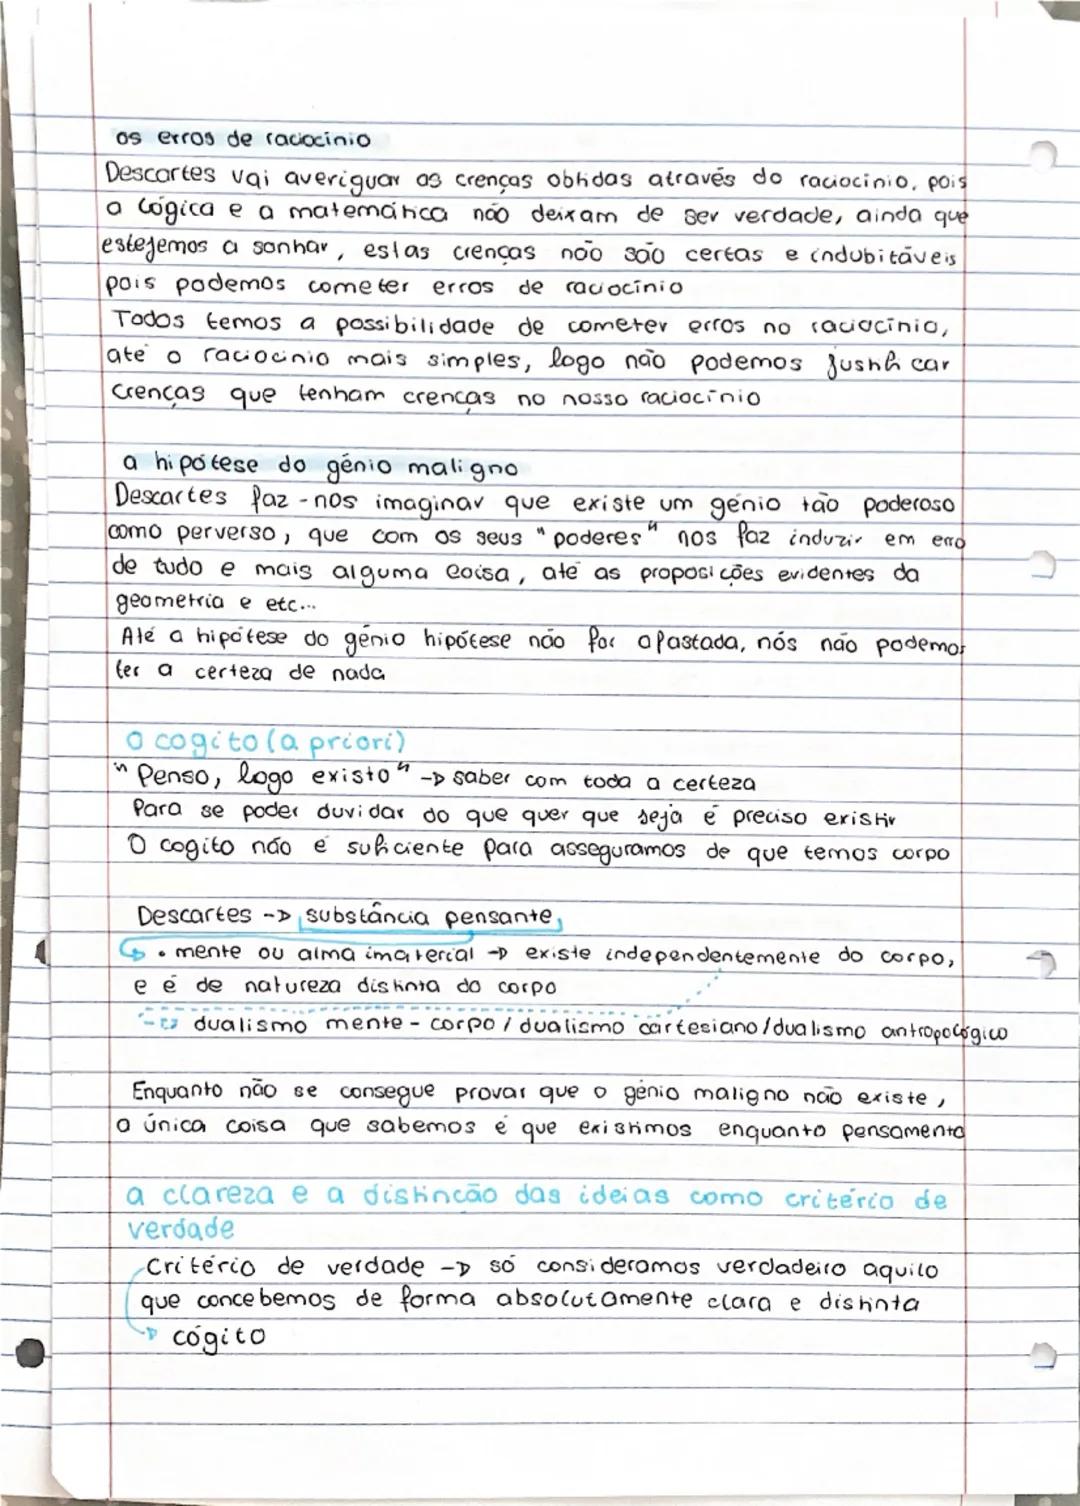 os erros de raciocínio
Descartes vai averiguar as crenças obtidas através do raciocínio, pois
a lógica e a matemática não deixam de ser verdade, ainda que
estejemos a sonhar, estas crenças não são certas e indubitáveis
pois podemos cometer erros de raciocínio
Todos temos a possibilidade de cometer erros no raciocínio,
até o raciocínio mais simples, logo não podemos justificar
crenças que tenham crenças no nosso raciocínio
a hipótese do génio maligno
Descartes faz-nos imaginar que existe um génio tão poderoso
como perverso, que com os seus "poderes" nos faz induzir em erro
de tudo e mais alguma coisa, até as proposições evidentes da
geometria e etc...
Até a hipótese do génio hipótese não for afastada, nós não podemos
ter a certeza de nada
O cogito (a priori)
"Penso, logo existo" -> saber com toda a certeza
Para se poder duvidar do que quer que seja é preciso existir
O cogito não é suficiente para asseguramos de que temos corpo
Descartes -> substância pensante
• mente ou alma imaterial -> existe independentemente do corpo,
e é de natureza distinta do corpo
-> dualismo mente - corpo / dualismo cartesiano / dualismo antropológico
Enquanto não se consegue provar que o génio maligno não existe,
a única coisa que sabemos é que existimos enquanto pensamento
a clareza e a distincão das ideias como critério de
verdade
Critério de verdade -> só consideramos verdadeiro aquilo
que concebemos de forma absolutamente clara e distinta
-> cógito